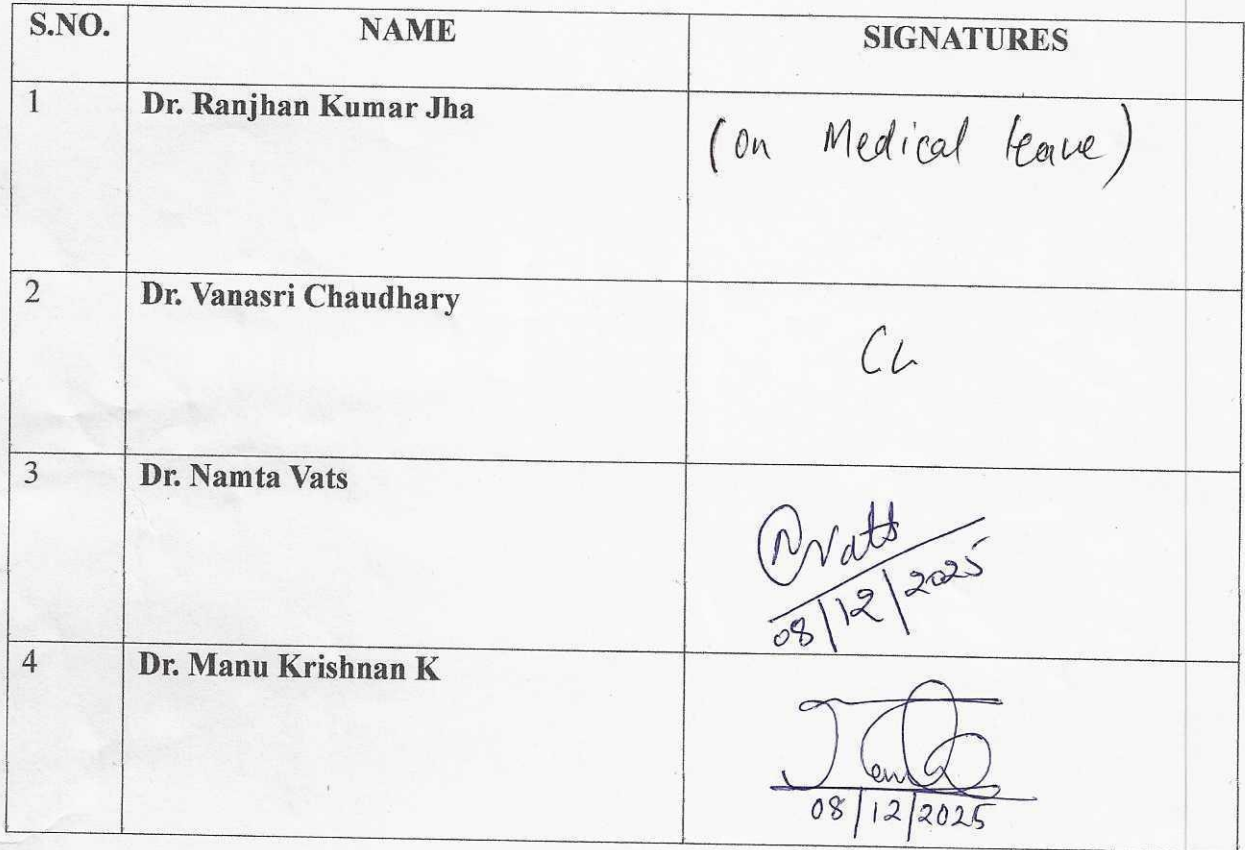 S.NO. NAME SIGNATURES
1 Dr. Ranjhan Kumar Jha (On Medical leave)
2 Dr. Vanasri Chaudhary CL
3 Dr. Namta Vats NVats
08/12/2025
4 Dr. Manu Krishnan K
08/12/2025